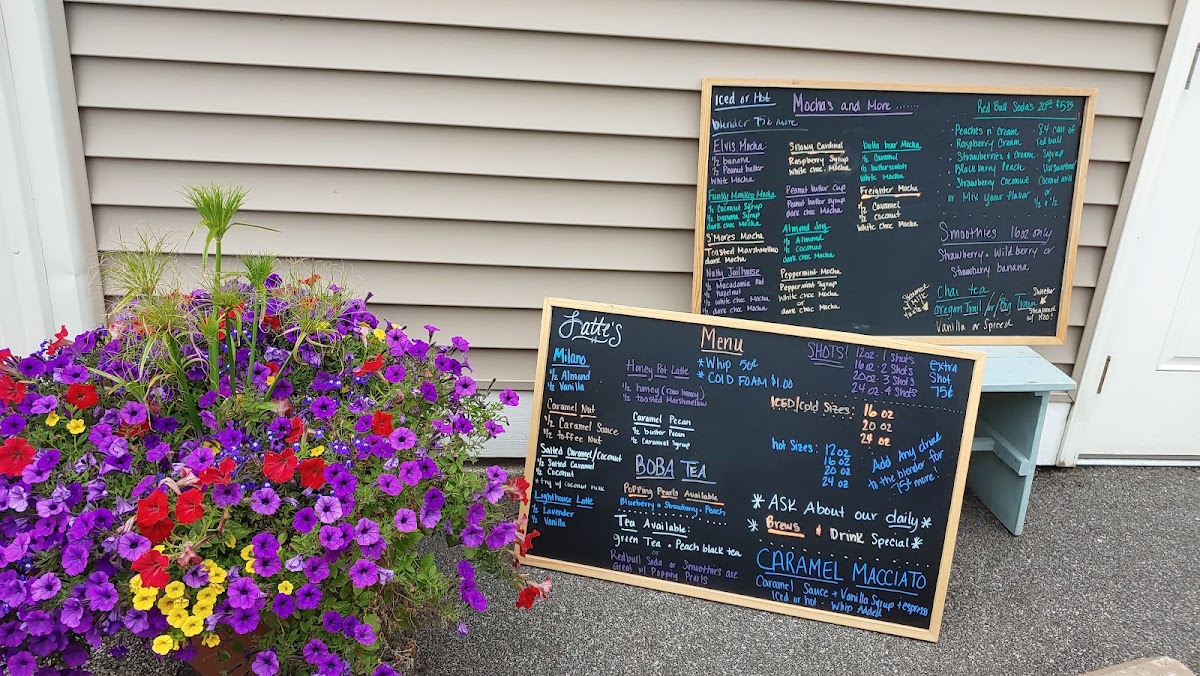 Iced or Hot
blender 75¢ more
Mocha's and More .......
Elvis Mocha:
1/2 banana
1/2 Peanut butter
White Mocha
Funky Monkey Mocha
1/2 Coconut Syrup
1/2 banana Syrup
dark choc Mocha
S'Mores Mocha
Toasted Marshmellow
dark Mocha
Nutty Jailhouse
1/2 Macadamia Nut
1/2 hazelnut
1/2 White choc Mocha
1/2 dark choc Mocha
Snowy Cardinal
Raspberry Syrup
White choc. Mocha
Peanut butter Cup
Peanut butter syrup
dark choc Mocha
Almond Joy
1/2 Almond
1/2 Coconut
dark choc Mocha
Peppermint Mocha
Peppermint Syrup
White choc Mocha
or
dark choc Mocha
Butta bear Mocha
1/2 Caramel
1/2 butterscotch
White Mocha
Freighter Mocha
1/2 Caramel
1/2 Coconut
White choc Mocha
Red Bull Soda's 20oz $5.75
Peaches n' Cream
Raspberry Cream
Strawberries n Cream
Blackberry Peach
Strawberry Coconut
or Mix your flavor
8.4 can of
Red bull
Syrup
Coconut milk
or
1/2 & 1/2
Smoothies 16oz only
Strawberry • Wildberry or
Strawbury banana
Chai tea
Oregon Trail or Big Train
Vanilla or Spiced
Steamed
Sweeter
Steamed
w/ H2O!
Latte's
Menu
Milano
1/2 Almond
1/2 Vanilla
Caramel Nut
1/2 Caramel Sauce
1/2 toffee Nut
Salted Caramel/Coconut
1/2 Salted Caramel
1/2 Coconut
*try w/ Coconut Milk
Lighthouse Latte
1/2 Lavender
1/2 Vanilla
Honey Pot Latte
1/2 honey (raw honey)
1/2 toasted Marshmellow
Caramel Pecan
1/2 butter Pecan
1/2 Caramel Syrup
BOBA TEA
Popping Pearls Available
Blueberry • Strawberry • Peach
Tea Available:
green Tea • Peach black tea
or
Redbull Soda or Smoothies are
Great w/ Popping Pearls
*Whip 50¢
*COLD FOAM $1.00
SHOTS!
12oz - 1 Shots
16oz - 2 Shots
20oz - 3 Shots
24 oz - 4 Shots
extra
Shot
75¢
ICED/cold Sizes:
16 oz
20 oz
24 oz
hot Sizes:
12oz
16 oz
20 oz
24 oz
Add any drink
to the blender for
75¢ more!
*ASK About our daily*
*Brews & Drink Special*
CARAMEL MACCIATO
Caramel Sauce + Vanilla Syrup + espress
Iced or hot - Whip Added